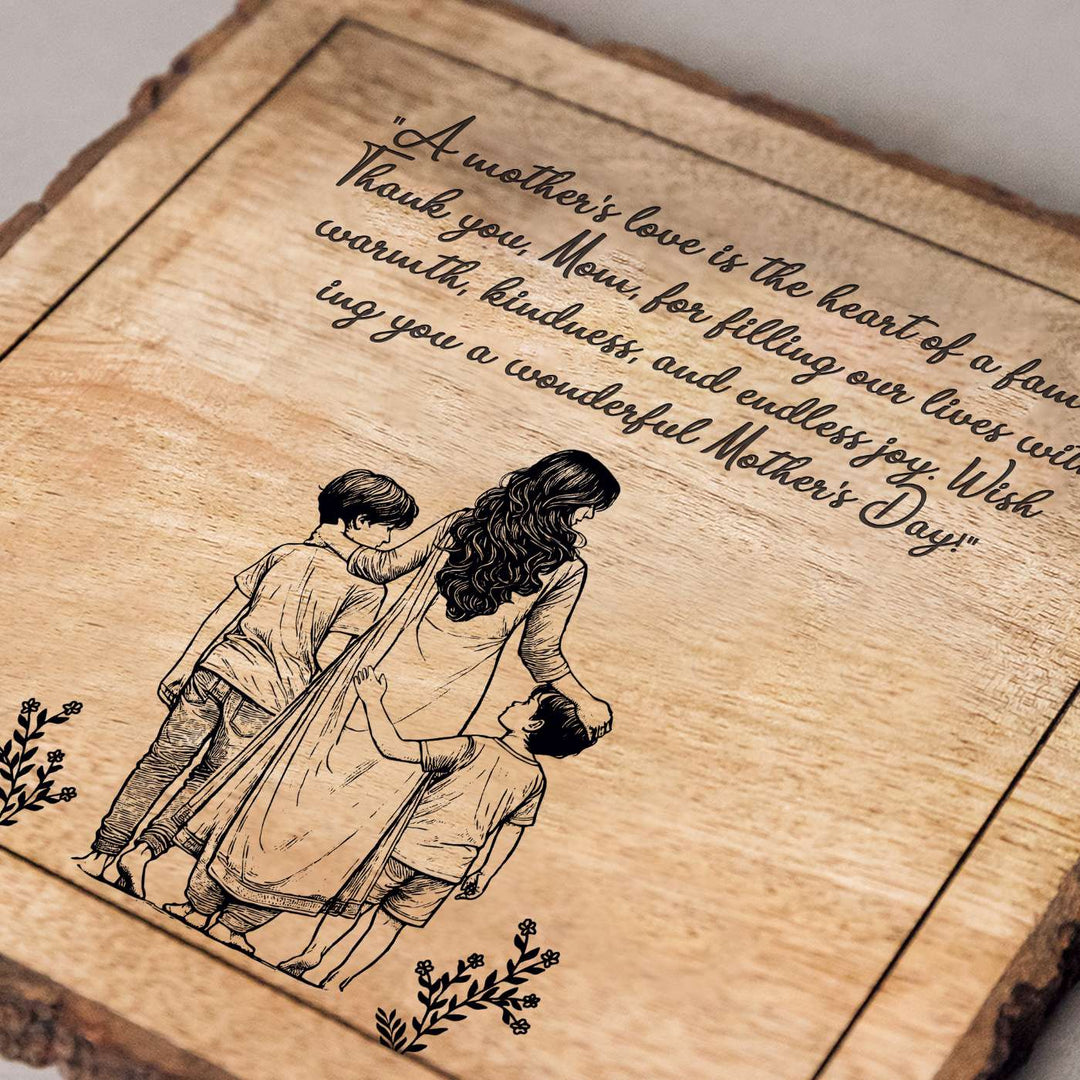 "A mother's love is the heart of a fam
Thank you, Mom, for filling our lives with
warmth, kindness, and endless joy. Wish
ing you a wonderful Mother's Day!"